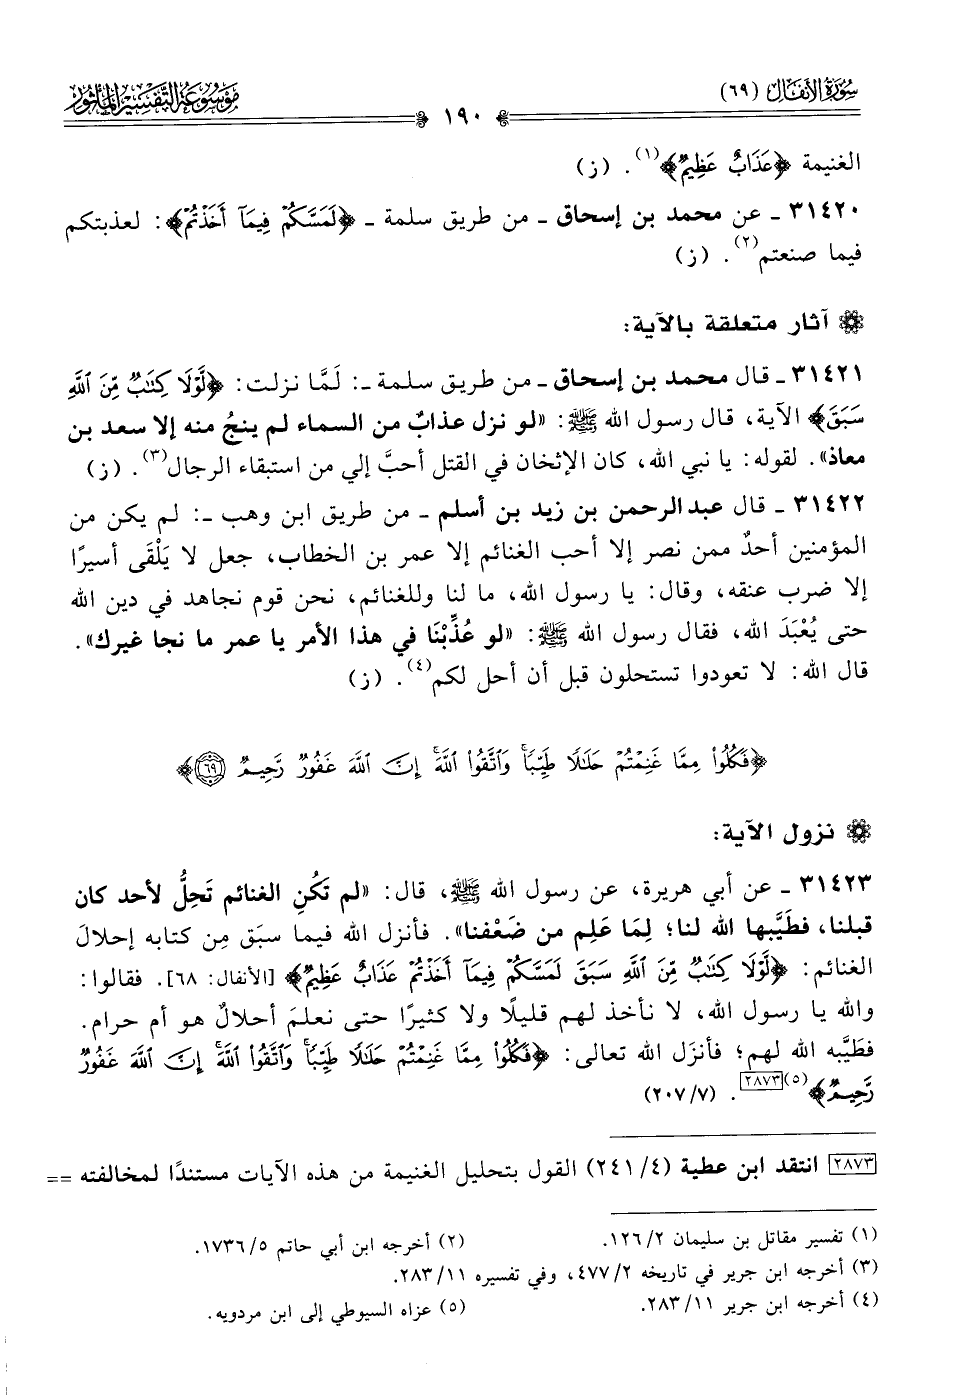 سُورَةُ الأَنفَال (٦٩)
١٩٠
مَوْسُوعَة التَّفسِير المَأثُور
الغنيمة ﴿عَذَابٌ عَظِيمٌ﴾(١). (ز)
٣١٤٢٠ ـ عن محمد بن إسحاق ـ من طريق سلمة ـ ﴿لَمَسَّكُمْ فِيمَآ أَخَذْتُمْ﴾: لعذبتكم
فيما صنعتم(٢). (ز)
آثار متعلقة بالآية:
٣١٤٢١ ـ قال محمد بن إسحاق ـ من طريق سلمة ـ: لَمَّا نزلت: ﴿لَّوْلَا كِتَٰبٌ مِّنَ ٱللَّهِ
سَبَقَ﴾ الآية، قال رسول الله ﷺ: «لو نزل عذابٌ من السماء لم ينجُ منه إلا سعد بن
معاذ». لقوله: يا نبي الله، كان الإثخان في القتل أحبَّ إلي من استبقاء الرجال(٣). (ز)
٣١٤٢٢ ـ قال عبد الرحمن بن زيد بن أسلم ـ من طريق ابن وهب ـ: لم يكن من
المؤمنين أحدٌ ممن نصر إلا أحب الغنائم إلا عمر بن الخطاب، جعل لا يَلْقَى أسيرًا
إلا ضرب عنقه، وقال: يا رسول الله، ما لنا وللغنائم، نحن قوم نجاهد في دين الله
حتى يُعْبَدَ الله، فقال رسول الله ﷺ: «لو عُذِّبْنَا في هذا الأمر يا عمر ما نجا غيرك».
قال الله: لا تعودوا تستحلون قبل أن أحل لكم(٤). (ز)
﴿فَكُلُوا۟ مِمَّا غَنِمْتُمْ حَلَٰلًا طَيِّبًا ۚ وَٱتَّقُوا۟ ٱللَّهَ ۚ إِنَّ ٱللَّهَ غَفُورٌ رَّحِيمٌ ٦٩﴾
نزول الآية:
٣١٤٢٣ ـ عن أبي هريرة، عن رسول الله ﷺ، قال: «لم تَكُنِ الغنائم تَحِلُّ لأحد كان
قبلنا، فطَيَّبها الله لنا؛ لِمَا عَلِم من ضَعْفنا». فأنزل الله فيما سبَق مِن كتابه إحلالَ
الغنائم: ﴿لَّوْلَا كِتَٰبٌ مِّنَ ٱللَّهِ سَبَقَ لَمَسَّكُمْ فِيمَآ أَخَذْتُمْ عَذَابٌ عَظِيمٌ﴾ [الأنفال: ٦٨]. فقالوا:
والله يا رسول الله، لا نأخذ لهم قليلًا ولا كثيرًا حتى نعلمَ أحلالٌ هو أم حرام.
فطَيَّبه الله لهم؛ فأنزَل الله تعالى: ﴿فَكُلُوا۟ مِمَّا غَنِمْتُمْ حَلَٰلًا طَيِّبًا ۚ وَٱتَّقُوا۟ ٱللَّهَ ۚ إِنَّ ٱللَّهَ غَفُورٌ
رَّحِيمٌ﴾(٥)[٢٨٧٣]. (٢٠٧/٧)
[٢٨٧٣] انتقد ابن عطية (٢٤١/٤) القول بتحليل الغنيمة من هذه الآيات مستندًا لمخالفته ==
(١) تفسير مقاتل بن سليمان ١٢٦/٢.
(٢) أخرجه ابن أبي حاتم ١٧٣٦/٥.
(٣) أخرجه ابن جرير في تاريخه ٤٧٧/٢، وفي تفسيره ٢٨٣/١١.
(٤) أخرجه ابن جرير ٢٨٣/١١.
(٥) عزاه السيوطي إلى ابن مردويه.